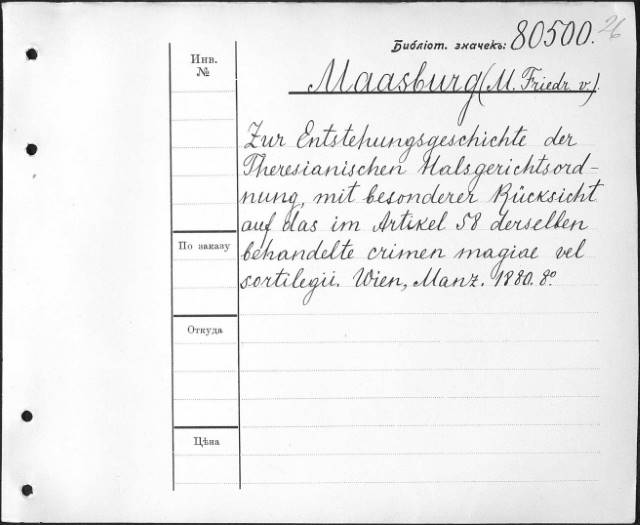 26
Библіот. значекъ: 80500.
Инв.
№
Maasburg (M. Friedr. v.)
Zur Entstehungsgeschichte der
Theresianischen Halsgerichtsord-
nung, mit besonderer Rücksicht
auf das im Artikel 58 derselben
behandelte crimen magiae vel
sortilegii. Wien, Manz. 1880. 8º
По заказу
Откуда
Цѣна